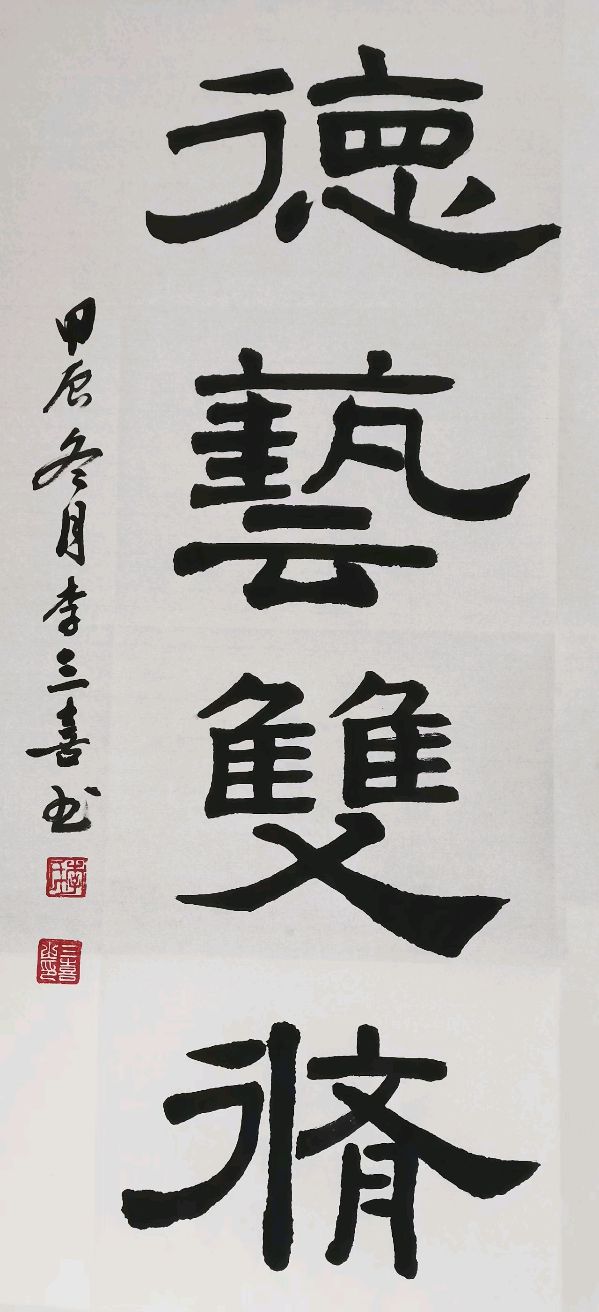 德藝雙脩
甲辰冬月李三喜书
三喜